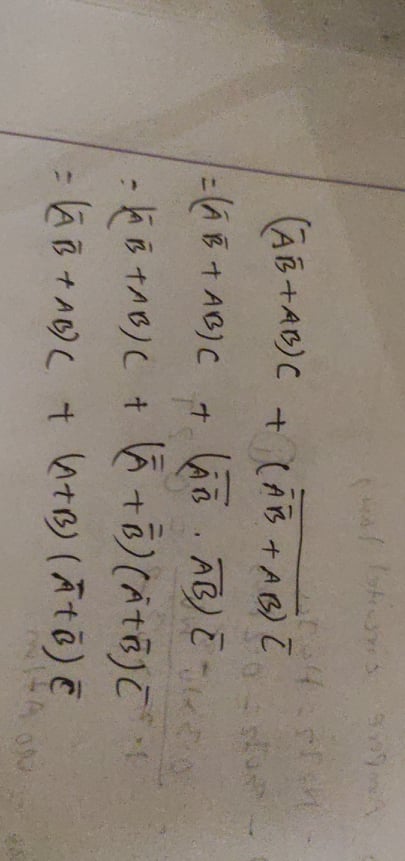 (A̅B̅+AB)C + (\overline{A̅B̅+AB})C̅
=(A̅B̅+AB)C + (\overline{A̅B̅} . \overline{AB})C̅
=(A̅B̅+AB)C + (A̿+B̿)(A̅+B̅)C̅
=(A̅B̅+AB)C + (A+B)(A̅+B̅)C̅